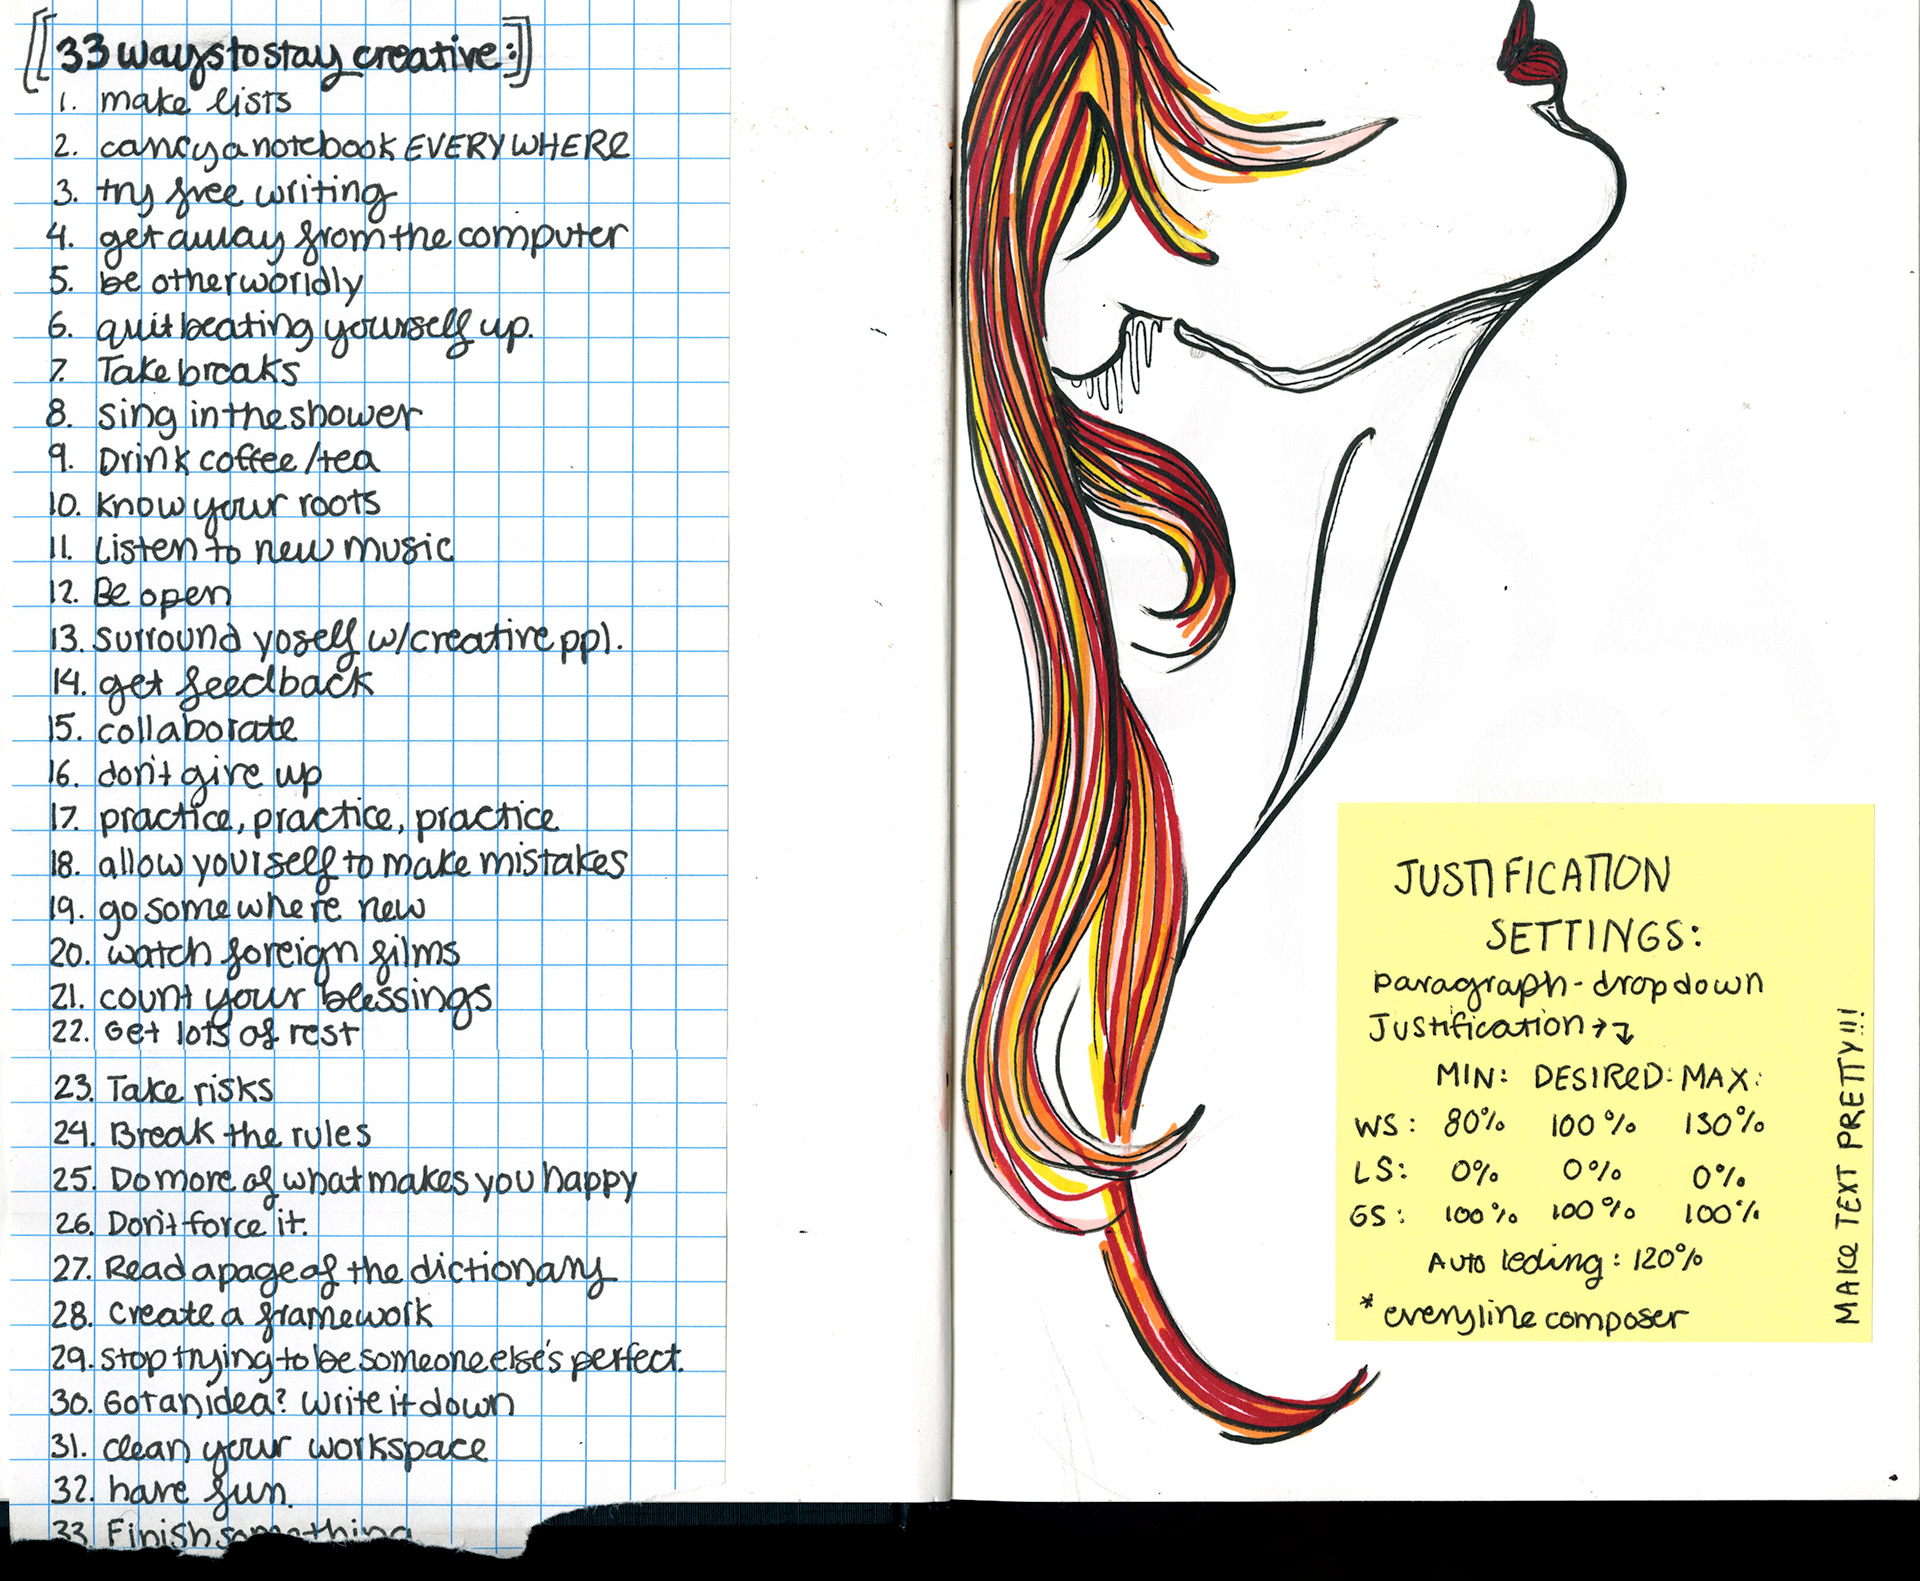 [[33 ways to stay creative:]]
1. make lists
2. carry a notebook EVERYWHERE
3. try free writing
4. get away from the computer
5. be otherworldly
6. quit beating yourself up.
7. Take breaks
8. sing in the shower
9. Drink coffee/tea
10. know your roots
11. Listen to new music
12. Be open
13. surround yoself w/creative ppl.
14. get feedback
15. collaborate
16. don't give up
17. practice, practice, practice
18. allow yourself to make mistakes
19. go somewhere new
20. watch foreign films
21. count your blessings
22. Get lots of rest
23. Take risks
24. Break the rules
25. Do more of what makes you happy
26. Don't force it.
27. Read a page of the dictionary
28. create a framework
29. stop trying to be someone else's perfect.
30. Got an idea? Write it down
31. clean your workspace
32. have fun.
33. Finish something
JUSTIFICATION
SETTINGS:
paragraph - dropdown
Justification →↴
MIN: DESIRED: MAX:
WS: 80% 100% 130%
LS: 0% 0% 0%
GS: 100% 100% 100%
Auto leding: 120%
* everyline composer
MAKE TEXT PRETTY!!!